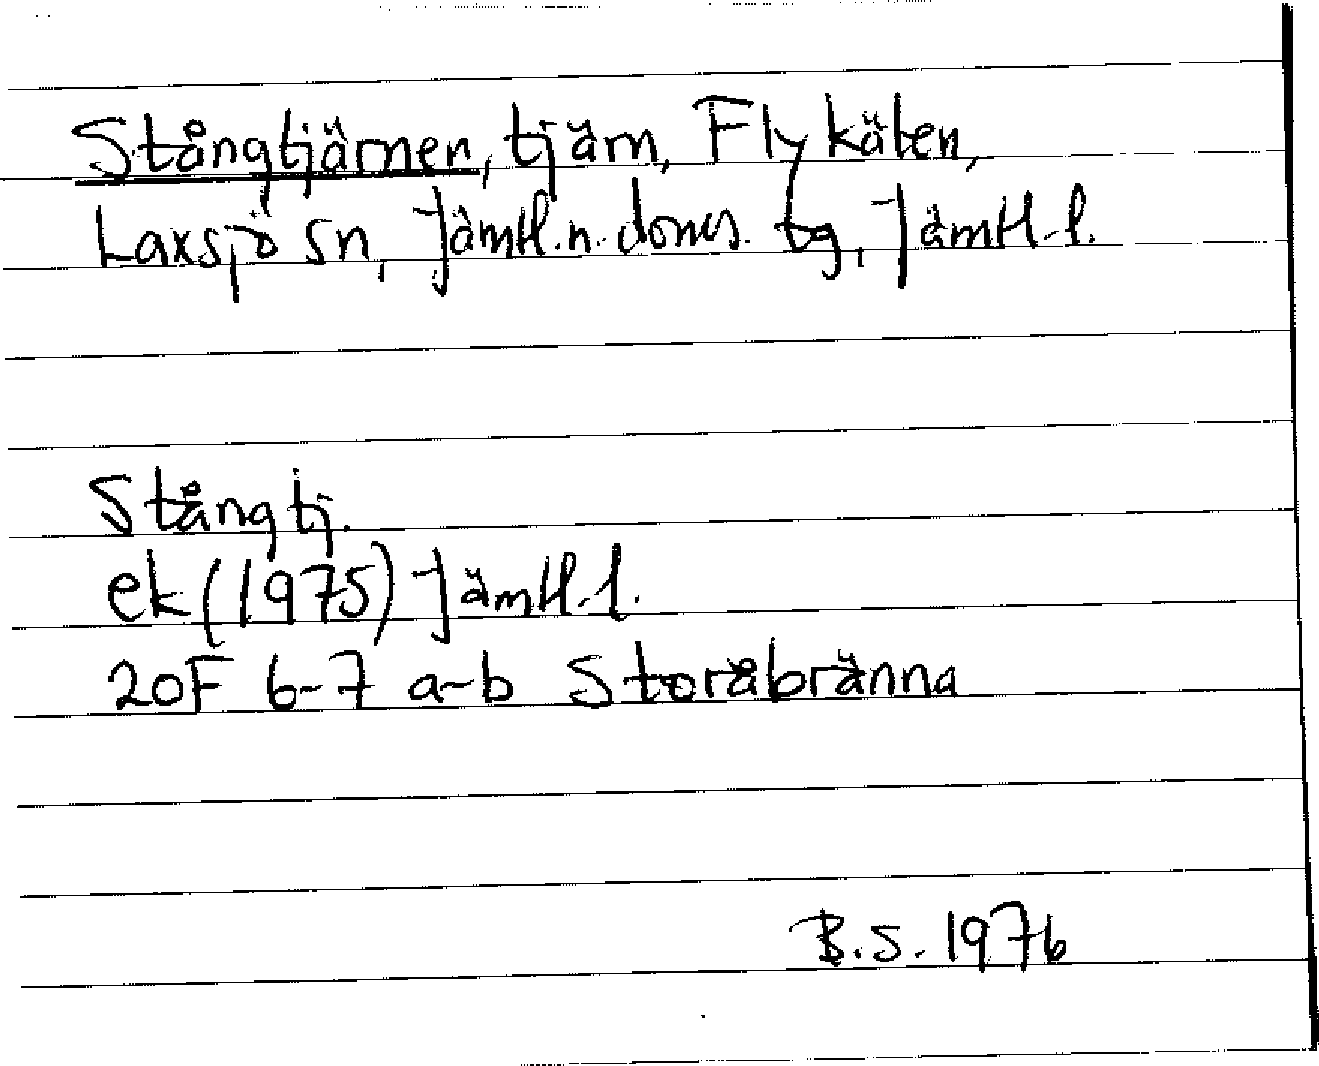 Stångtjärnen, tjärn, Flykälen,
Laxsjö sn, Jämtl. n. doms. tg, Jämtl. l.
Stångtj.
ek (1975) Jämtl. l.
20F 6-7 a-b Storåbränna
B.S. 1976